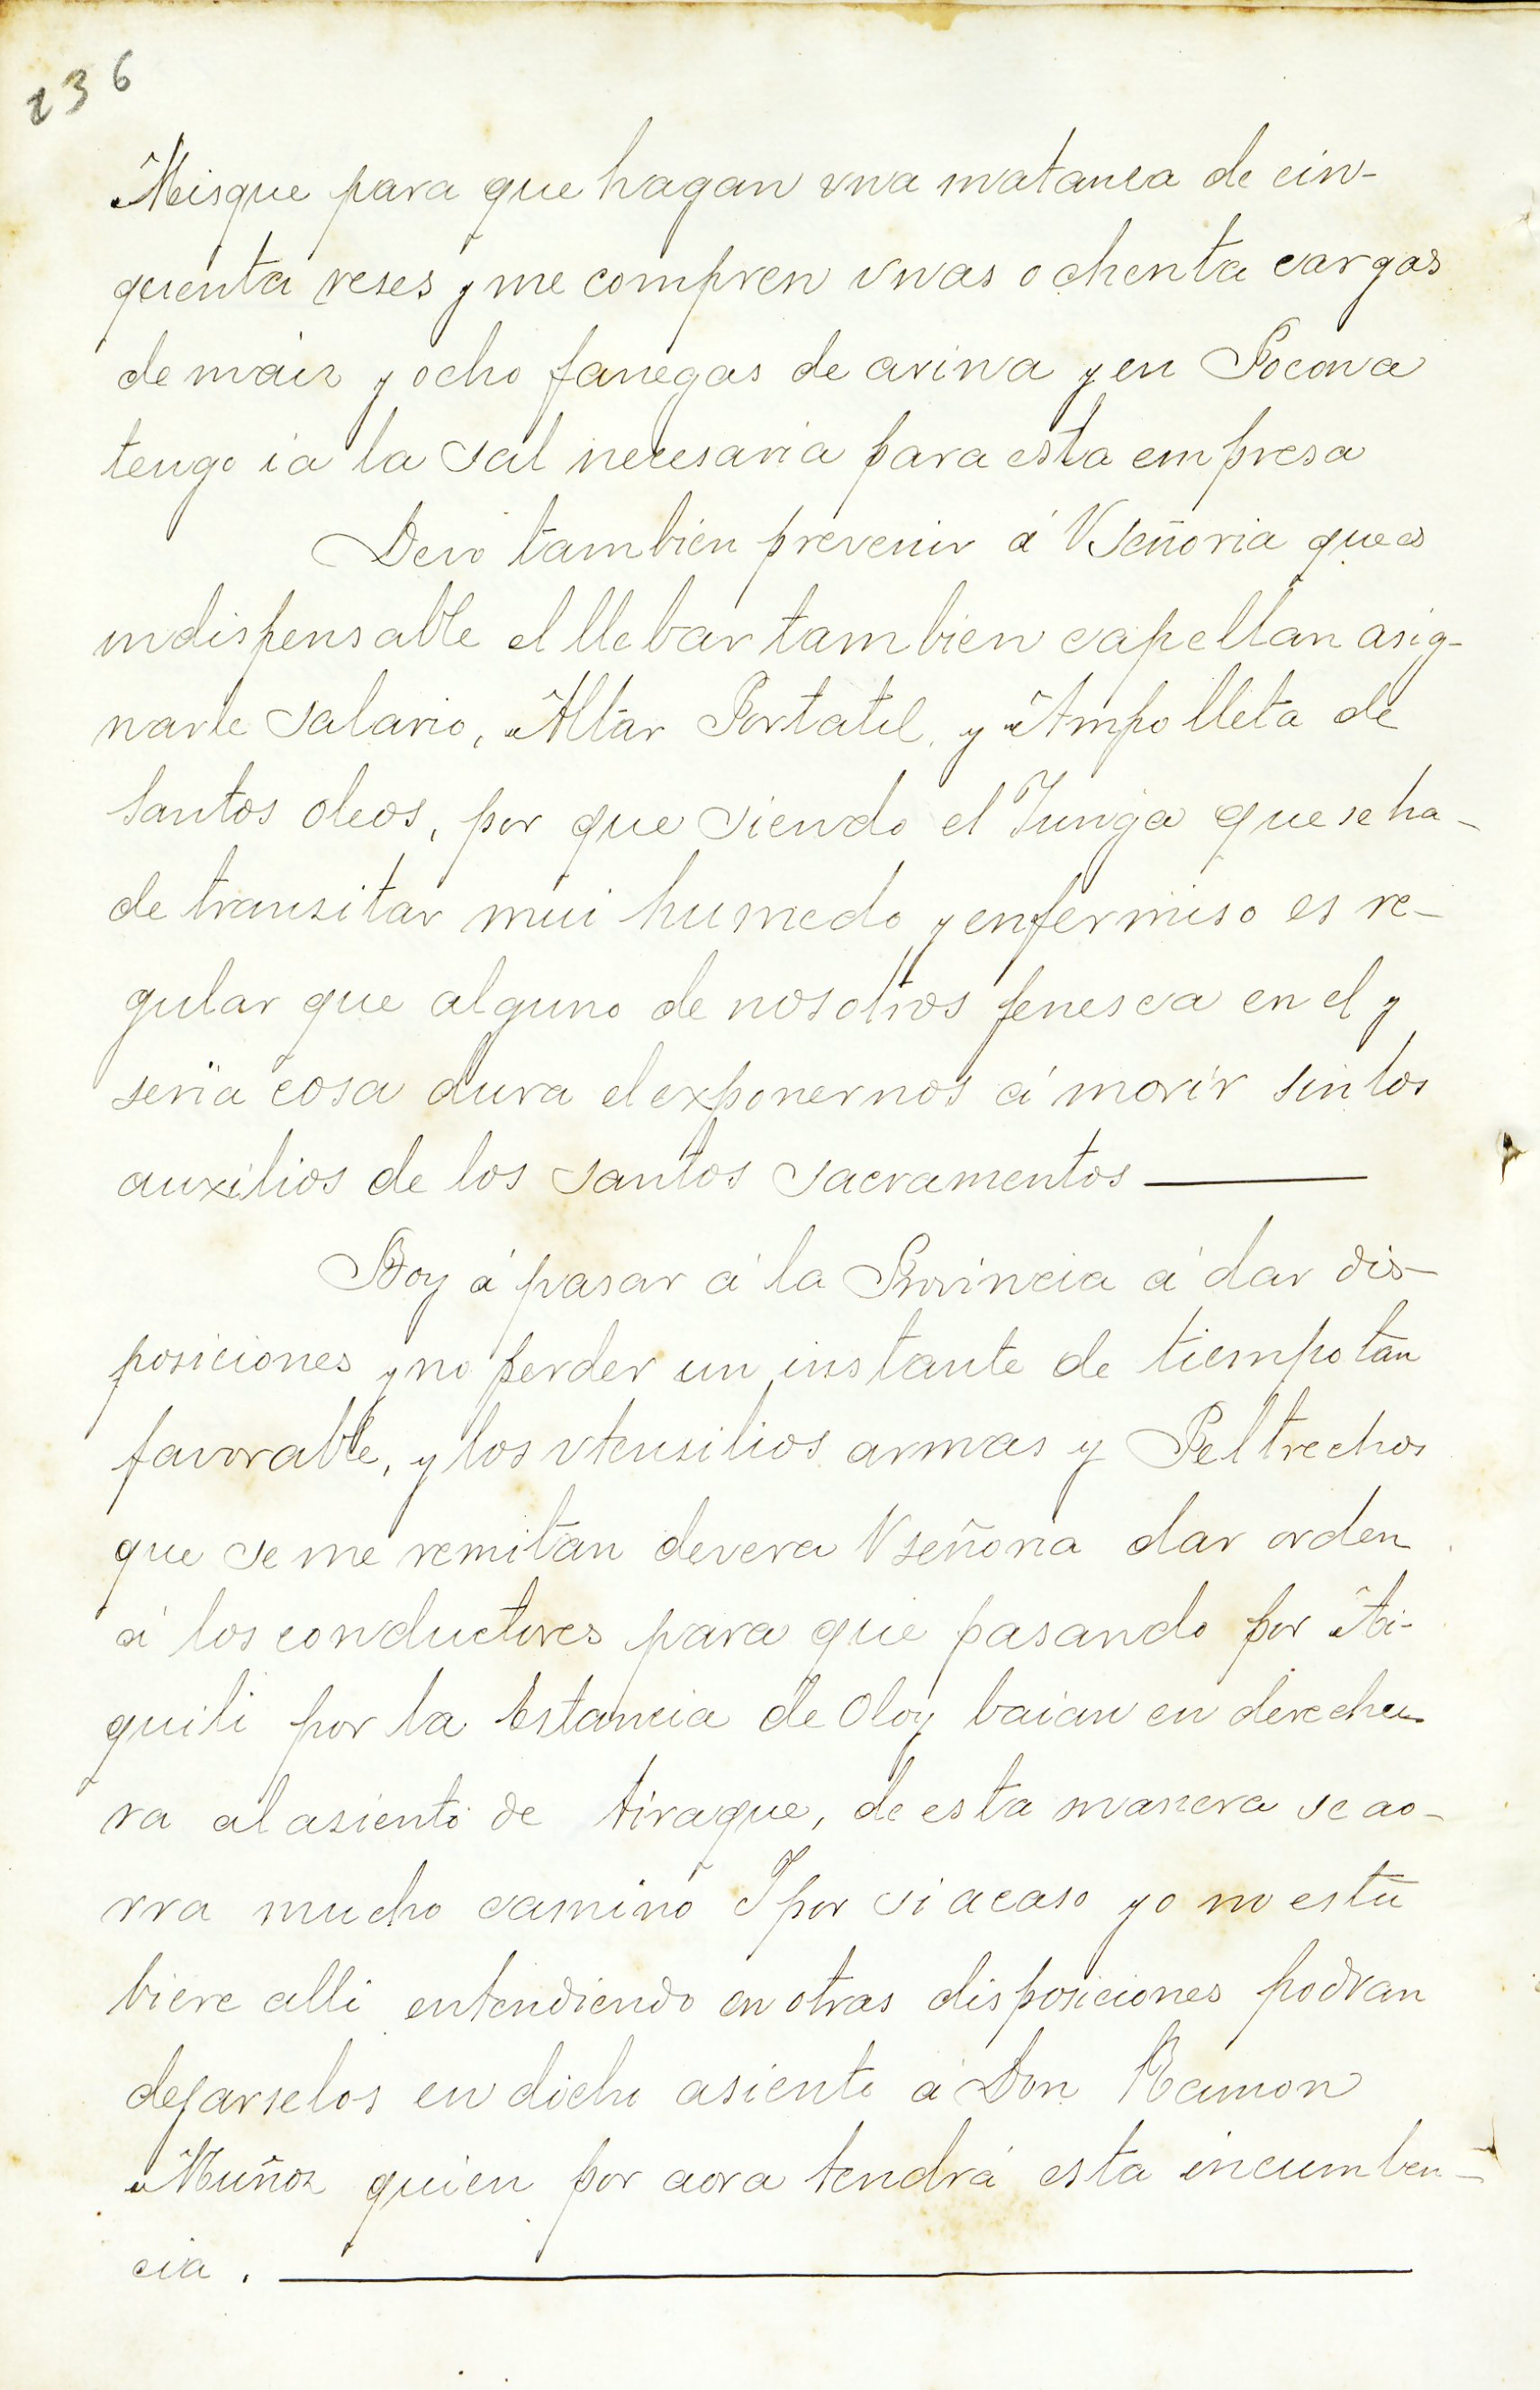 236
Misque para que hagan vna matansa de cin-
quenta reses y me compren vnas ochenta cargas
de mais y ocho fanegas de arina y en Pocona
tengo ia la sal necesaria para esta empresa
Devo tambien prevenir á V Señoria que es
indispensable el llebar tambien capellan asig-
narle salario, Altar Portatil, y Ampolleta de
Santos oleos, por que siendo el Yunga que se ha-
de transitar mui humedo y enfermiso es re-
gular que alguno de nosotros fenesca en el y
seria cosa dura el exponernos á morir sin los
auxilios de los santos sacramentos
Boy á pasar á la Provincia á dar dis-
posiciones y no perder un instante de tiempo tan
favorable, y los vtensilios armas y Peltrechos
que se me remitan devera V Señoria dar orden
á los conductores para que pasando por Ai-
quili por la Estancia de Oloy baian en derechu-
ra al asiento de tiraque, de esta manera se ao-
rra mucho camino Y por si acaso yo no estu
biere alli entendiendo en otras disposiciones podran
dejarselos en dicho asiento á Don Ramon
Muños quien por aora tendrá esta incumben-
cia.